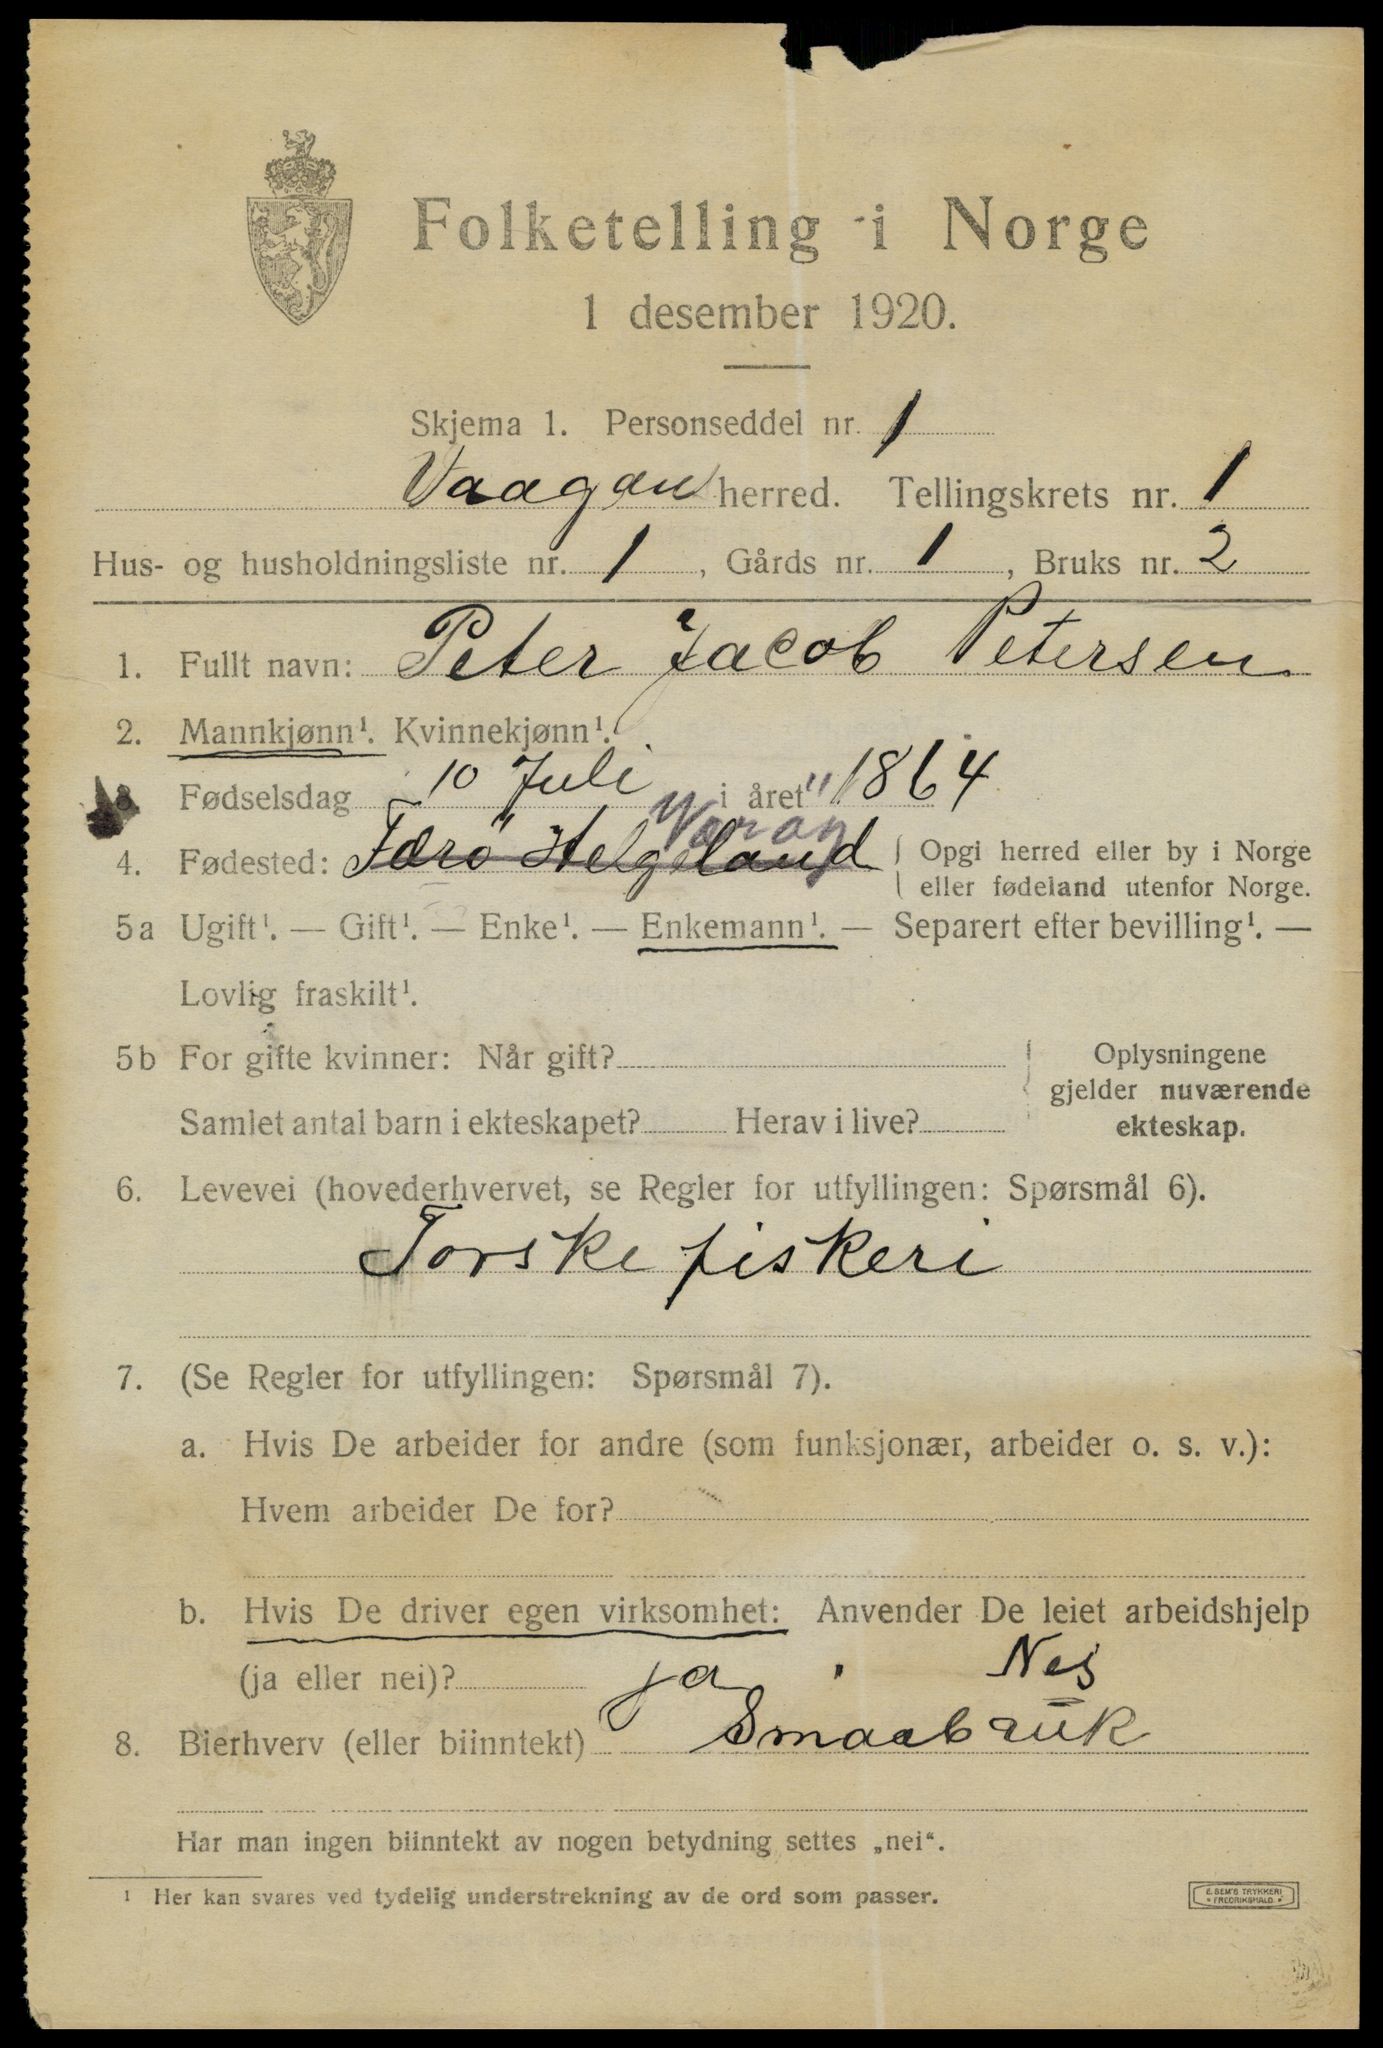 Folketelling i Norge
1 desember 1920.
Skjema 1. Personseddel nr. 1
Vaagan herred. Tellingskrets nr. 1
Hus- og husholdningsliste nr. 1, Gårds nr. 1, Bruks nr. 2
1. Fullt navn: Peter Jacob Petersen
2. Mannkjønn¹. Kvinnekjønn¹.
3. Fødselsdag 10 Juli i året 1864
4. Fødested: Færö Helgeland
Opgi herred eller by i Norge
eller fødeland utenfor Norge.
5a Ugift¹. — Gift¹. — Enke¹. — Enkemann¹. — Separert efter bevilling¹. —
Lovlig fraskilt¹.
5b For gifte kvinner: Når gift?
Samlet antal barn i ekteskapet? Herav i live?
Oplysningene
gjelder nuværende
ekteskap.
6. Levevei (hovederhvervet, se Regler for utfyllingen: Spørsmål 6).
Torske fiskeri
7. (Se Regler for utfyllingen: Spørsmål 7).
a. Hvis De arbeider for andre (som funksjonær, arbeider o. s. v.):
Hvem arbeider De for?
b. Hvis De driver egen virksomhet: Anvender De leiet arbeidshjelp
(ja eller nei)? ja
Nes
8. Bierhverv (eller biinntekt) Smaabruk
Har man ingen biinntekt av nogen betydning settes „nei“.
¹ Her kan svares ved tydelig understrekning av de ord som passer.
E. SEM'S TRYKKERI
FREDRIKSHALD.